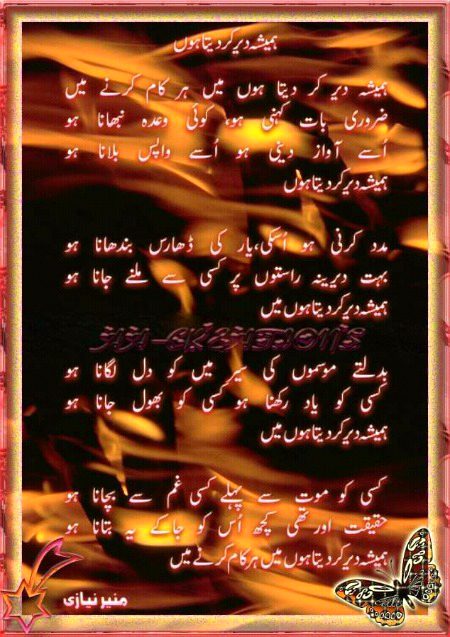 ہمیشہ دیر کر دیتا ہوں
ہمیشہ دیر کر دیتا ہوں میں ہر کام کرنے میں
ضروری بات کہنی ہو، کوئی وعدہ نبھانا ہو
اُسے آواز دینی ہو اُسے واپس بلانا ہو
ہمیشہ دیر کر دیتا ہوں
مدد کرنی ہو اُسکی، یار کی ڈھارس بندھانا ہو
بہت دیرینہ راستوں پر کسی سے ملنے جانا ہو
ہمیشہ دیر کر دیتا ہوں میں
بدلتے موسموں کی سیر میں کو دل لگانا ہو
کسی کو یاد رکھنا ہو کسی کو بھول جانا ہو
ہمیشہ دیر کر دیتا ہوں میں
کسی کو موت سے پہلے کسی غم سے بچانا ہو
حقیقت اور تھی کچھ اُس کو جا کے یہ بتانا ہو
ہمیشہ دیر کر دیتا ہوں میں ہر کام کرنے میں
منیر نیازی